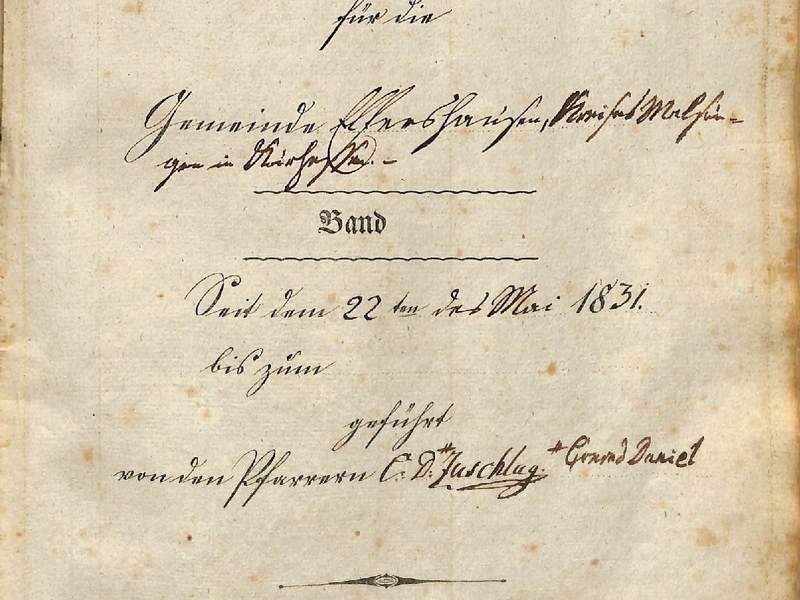 für die
Gemeinde Elfershausen, Kreises Melsun-
gen in Kurhessen. -
Band
Seit dem 22 ten des Mai 1831.
bis zum
geführt
von den Pfarrern C. D. Juschlag. * Conrad Daniel